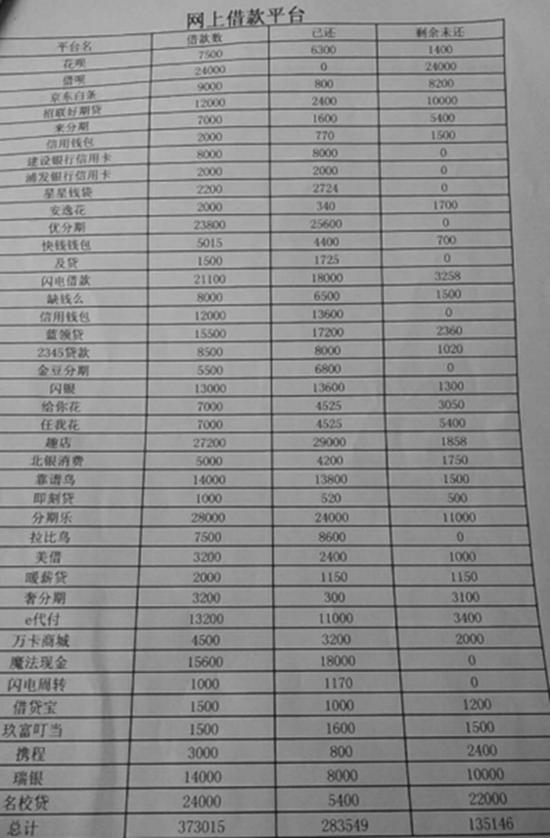 网上借款平台
平台名 借款数 已还 剩余未还
花呗 7500 6300 1400
借呗 24000 0 24000
京东白条 9000 800 8200
招联好期贷 12000 2400 10000
来分期 7000 1600 5400
信用钱包 2000 770 1500
建设银行信用卡 8000 8000 0
浦发银行信用卡 2000 2000 0
星星钱袋 2200 2724 0
安逸花 2000 340 1700
优分期 23800 25600 0
快钱钱包 5015 4400 700
及贷 1500 1725 0
闪电借款 21100 18000 3258
缺钱么 8000 6500 1500
信用钱包 12000 13600 0
蓝领贷 15500 17200 2360
2345贷款 8500 8000 1020
金豆分期 5500 6800 0
闪银 13000 13600 1300
给你花 7000 4525 3050
任我花 7000 4525 5400
趣店 27200 29000 1858
北银消费 5000 4200 1750
靠谱鸟 14000 13800 1500
即刻贷 1000 520 500
分期乐 28000 24000 11000
拉比鸟 7500 8600 0
美借 3200 2400 1000
暖薪贷 2000 1150 1150
奢分期 3200 300 3100
e代付 13200 11000 3400
万卡商城 4500 3200 2000
魔法现金 15600 18000 0
闪电周转 1000 1170 0
借贷宝 1500 1000 1200
玖富叮当 1500 1600 1500
携程 3000 800 2400
瑞银 14000 8000 10000
名校贷 24000 5400 22000
总计 373015 283549 135146